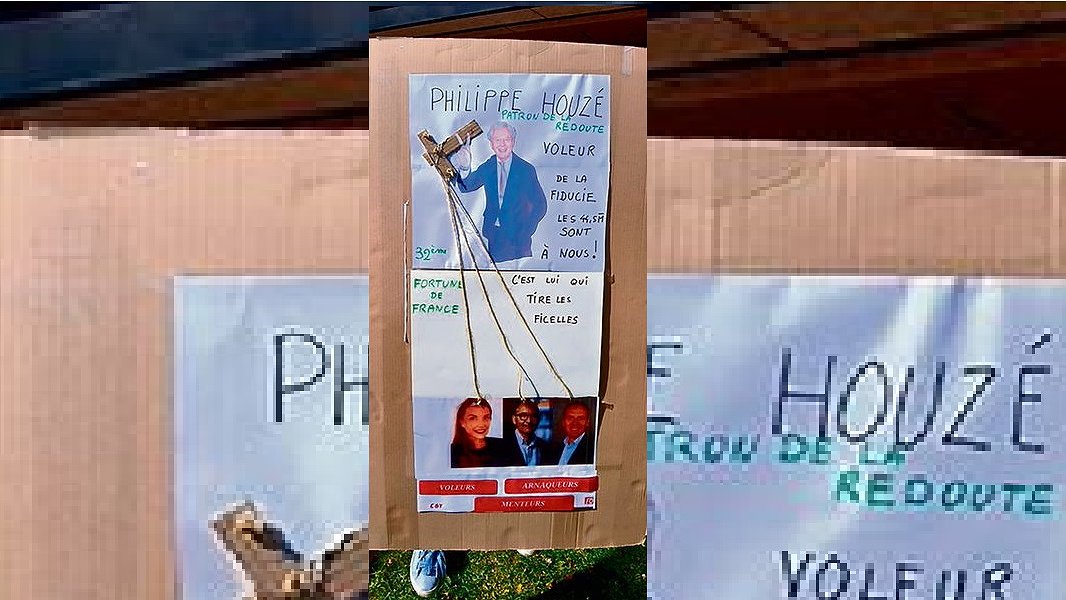 PHILIPPE HOUZÉ
PATRON DE LA
REDOUTE
VOLEUR
DE LA
FIDUCIE
LES 44,5M
SONT
À NOUS!
32ème
FORTUNE
DE
FRANCE
C'EST LUI QUI
TIRE LES
FICELLES
VOLEURS
ARNAQUEURS
MENTEURS
CGT
PH
HOUZÉ
TRON DE LA
REDOUTE
VOLEUR